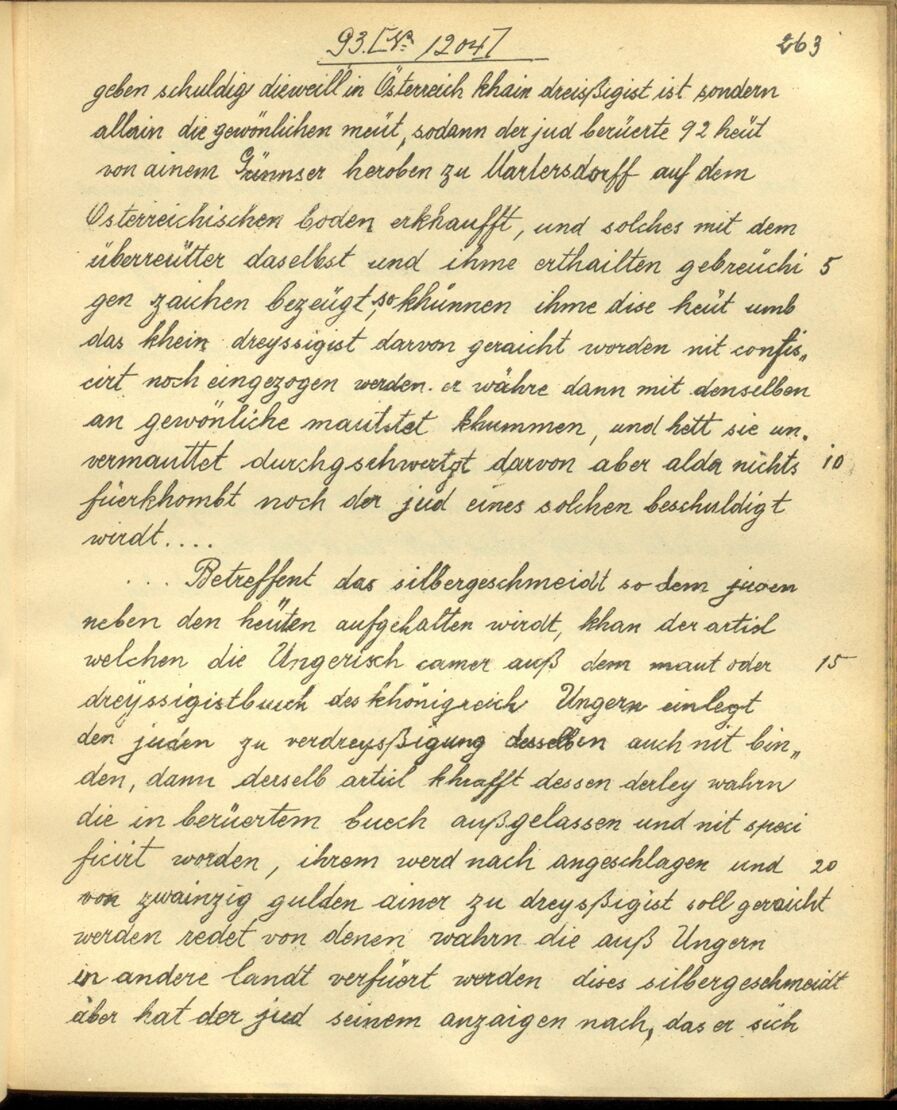 93. [№ 1204] 263
geben schuldig dieweill in Österreich khain dreisßigist ist sondern
allain die gewönlichen meüt, sodann der jud berüerte 92 heüt
von ainem Günnser heroben zu Martersdorff auf dem
Österreichischen boden erkhaufft, und solches mit dem
überreütter daselbst und ihme erthailten gebreüchi 5
gen zaichen bezeügt, so khünnen ihme dise heüt umb
das khein dreyssigist darvon geraicht worden nit confis„
cirt noch eingezogen werden. er währe dann mit denselben
an gewönliche mautstet khummen, und hett sie un„
vermauttet durchgschwertzt darvon aber alda nichts 10
füerkhombt noch der jud eines solchen beschuldigt
wirdt....
... Betreffent das silbergeschmeidt so dem juden
neben den heüten aufgehalten wirdt, khan der articl
welchen die Ungerisch camer auß dem maut oder 15
dreyssigistbuech des khönigreich Ungern einlegt
den juden zu verdreysßigung desselben auch nit bin„
den, dann derselb articl khrafft dessen derley wahrn
die in berüertem buech außgelassen und nit speci
ficirt worden, ihrem werd nach angeschlagen und 20
von zwainzig gulden ainer zu dreysßigist soll geraicht
werden redet von denen wahrn die auß Ungern
in andere landt verfüert werden dises silbergeschmeidt
aber hat der jud seinem anzaigen nach, das er sich